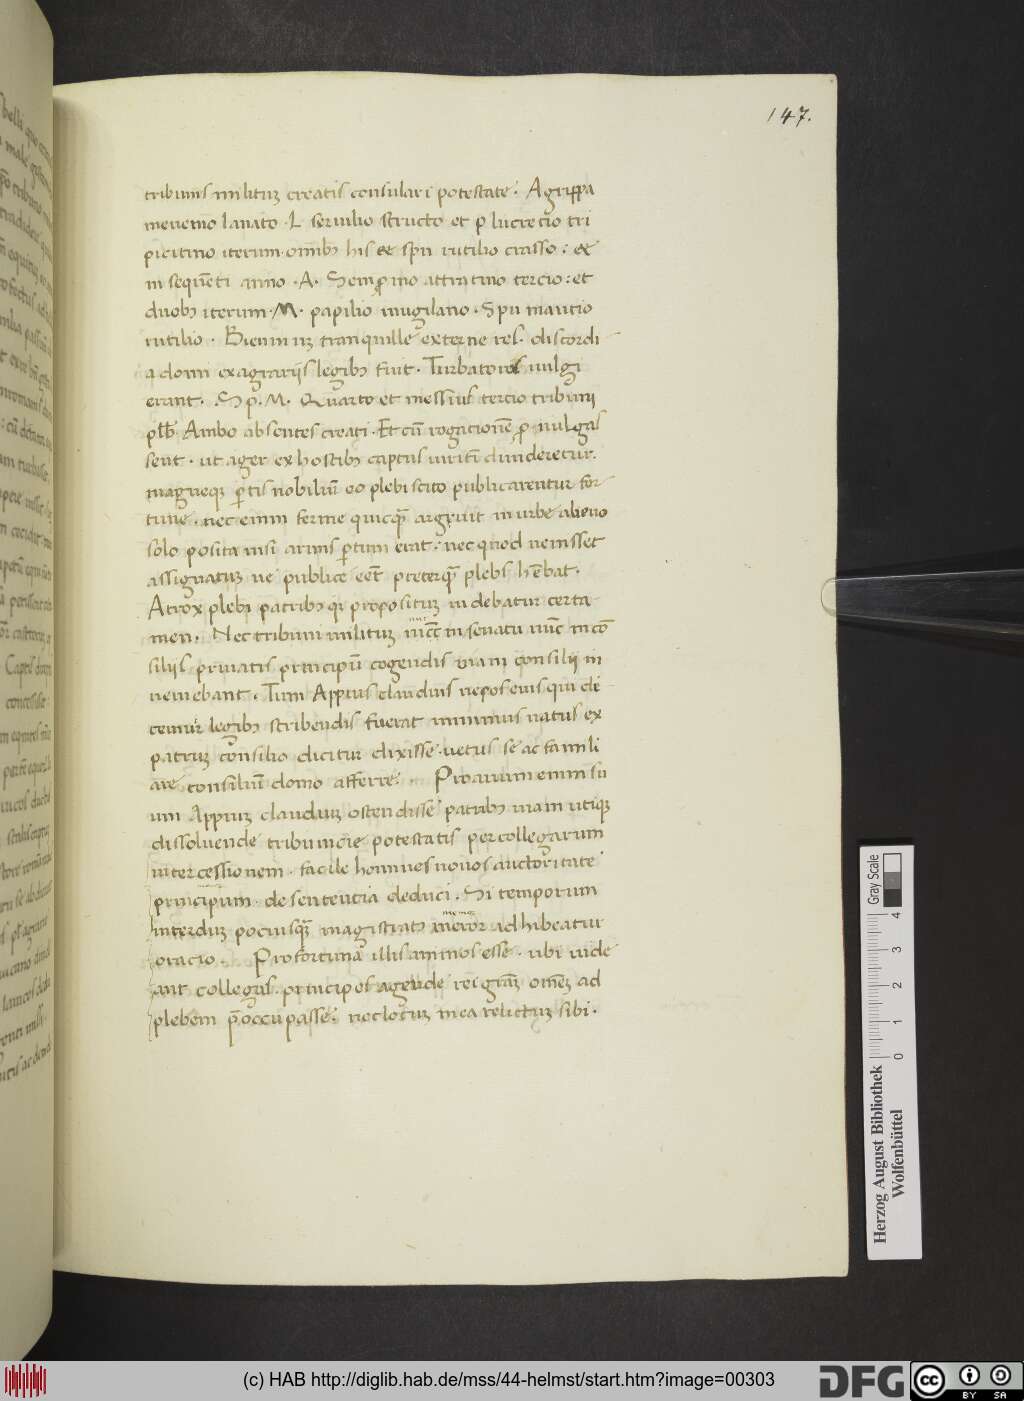 147.
tribunis milituꝫ creatis consulari potestate: Agrippa
menenio lanato · L seruilio structo et p lucrecio tri
picitino iterum · omībꝫ his et spu rutilio crasso: et
in sequēti anno · A · Sempronio attratino tercio: et
duobꝫ iterum · M · papilio mugilano · Spu mancio
rutilio · Bienniuꝫ tranquille externe res · discordi
a domi ex agrariis legibꝫ fuit · Turbatores uulgi
erant · Sp · M · Quarto et messius tercio tribuni
plb̄ · Ambo absentes creati · Et cū rogationē promulgas
sent · ut ager ex hostibꝫ captus uiritī diuideretur ·
magneqꝫ ꝑtis nobiliū eo plebiscito publicarentur for
tune · nec enim ferme quicqꝫ argruit in urbe alieno
solo posita nisi armis ꝑtum erat: nec quod uenisset
assignatuꝫ ue publice eēt preterqꝫ plebs hēbat ·
Atrox plebi patribꝫqꝫ propositum uidebatur certa
men · Nec tribuni milituꝫ nūc in senatu nūc in cō
siliis priuatis principū cogendis uiam consilii in
ueniebant · Tum Appius claudius nepos eius qui de
cemuir legibꝫ scribendis fuerat minimus natus ex
patruꝫ consilio dicitur dixisse · uetus se ac famili
are consiliū domo afferre: Proauum enim su
um Appiuꝫ claudiuꝫ ostendisse patribꝫ uiam utiqꝫ
dissoluende tribunicie potestatis per collegarum
intercessionem · facile homines nouos auctoritate
principum · de sententia deduci · Si temporum
interduꝫ pociusqꝫ magistratꝫ memor adhibeatur
oracio · Pro fortuna illis animos esse · ubi uide
ant collegas · principes agende rei grām omēꝫ ad
plebem p̄occupasse: nec locuꝫ in ea relictuꝫ sibi ·
Gray Scale
0 1 2 3 4
Herzog August Bibliothek
Wolfenbüttel
(c) HAB http://diglib.hab.de/mss/44-helmst/start.htm?image=00303
DFG
cc BY SA